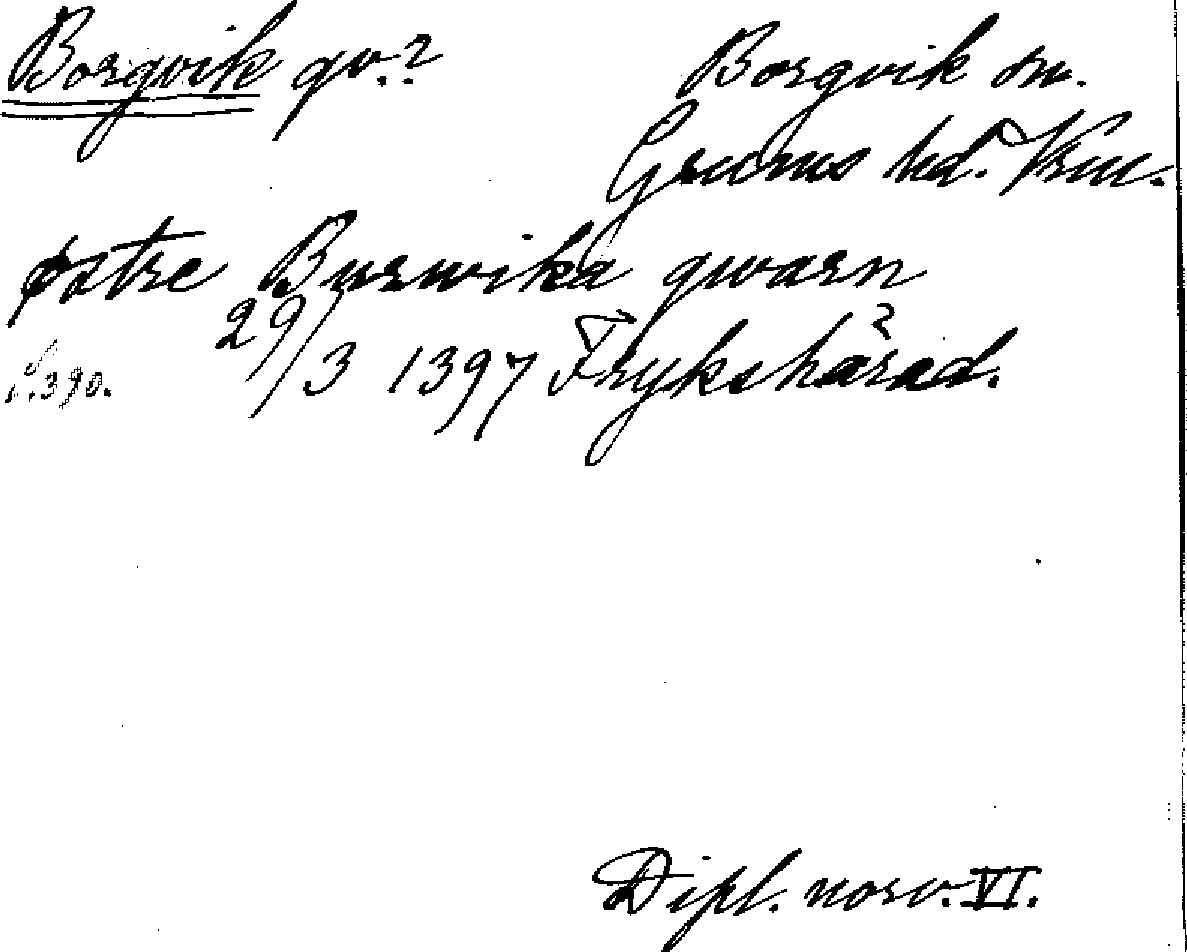 Borgvik qv.?
Borgvik sn.
Grums hd. Vrml.
østre Burwika qwarn
29/3 1397 Frykshärad.
S. 390.
Dipl. norv. VI.